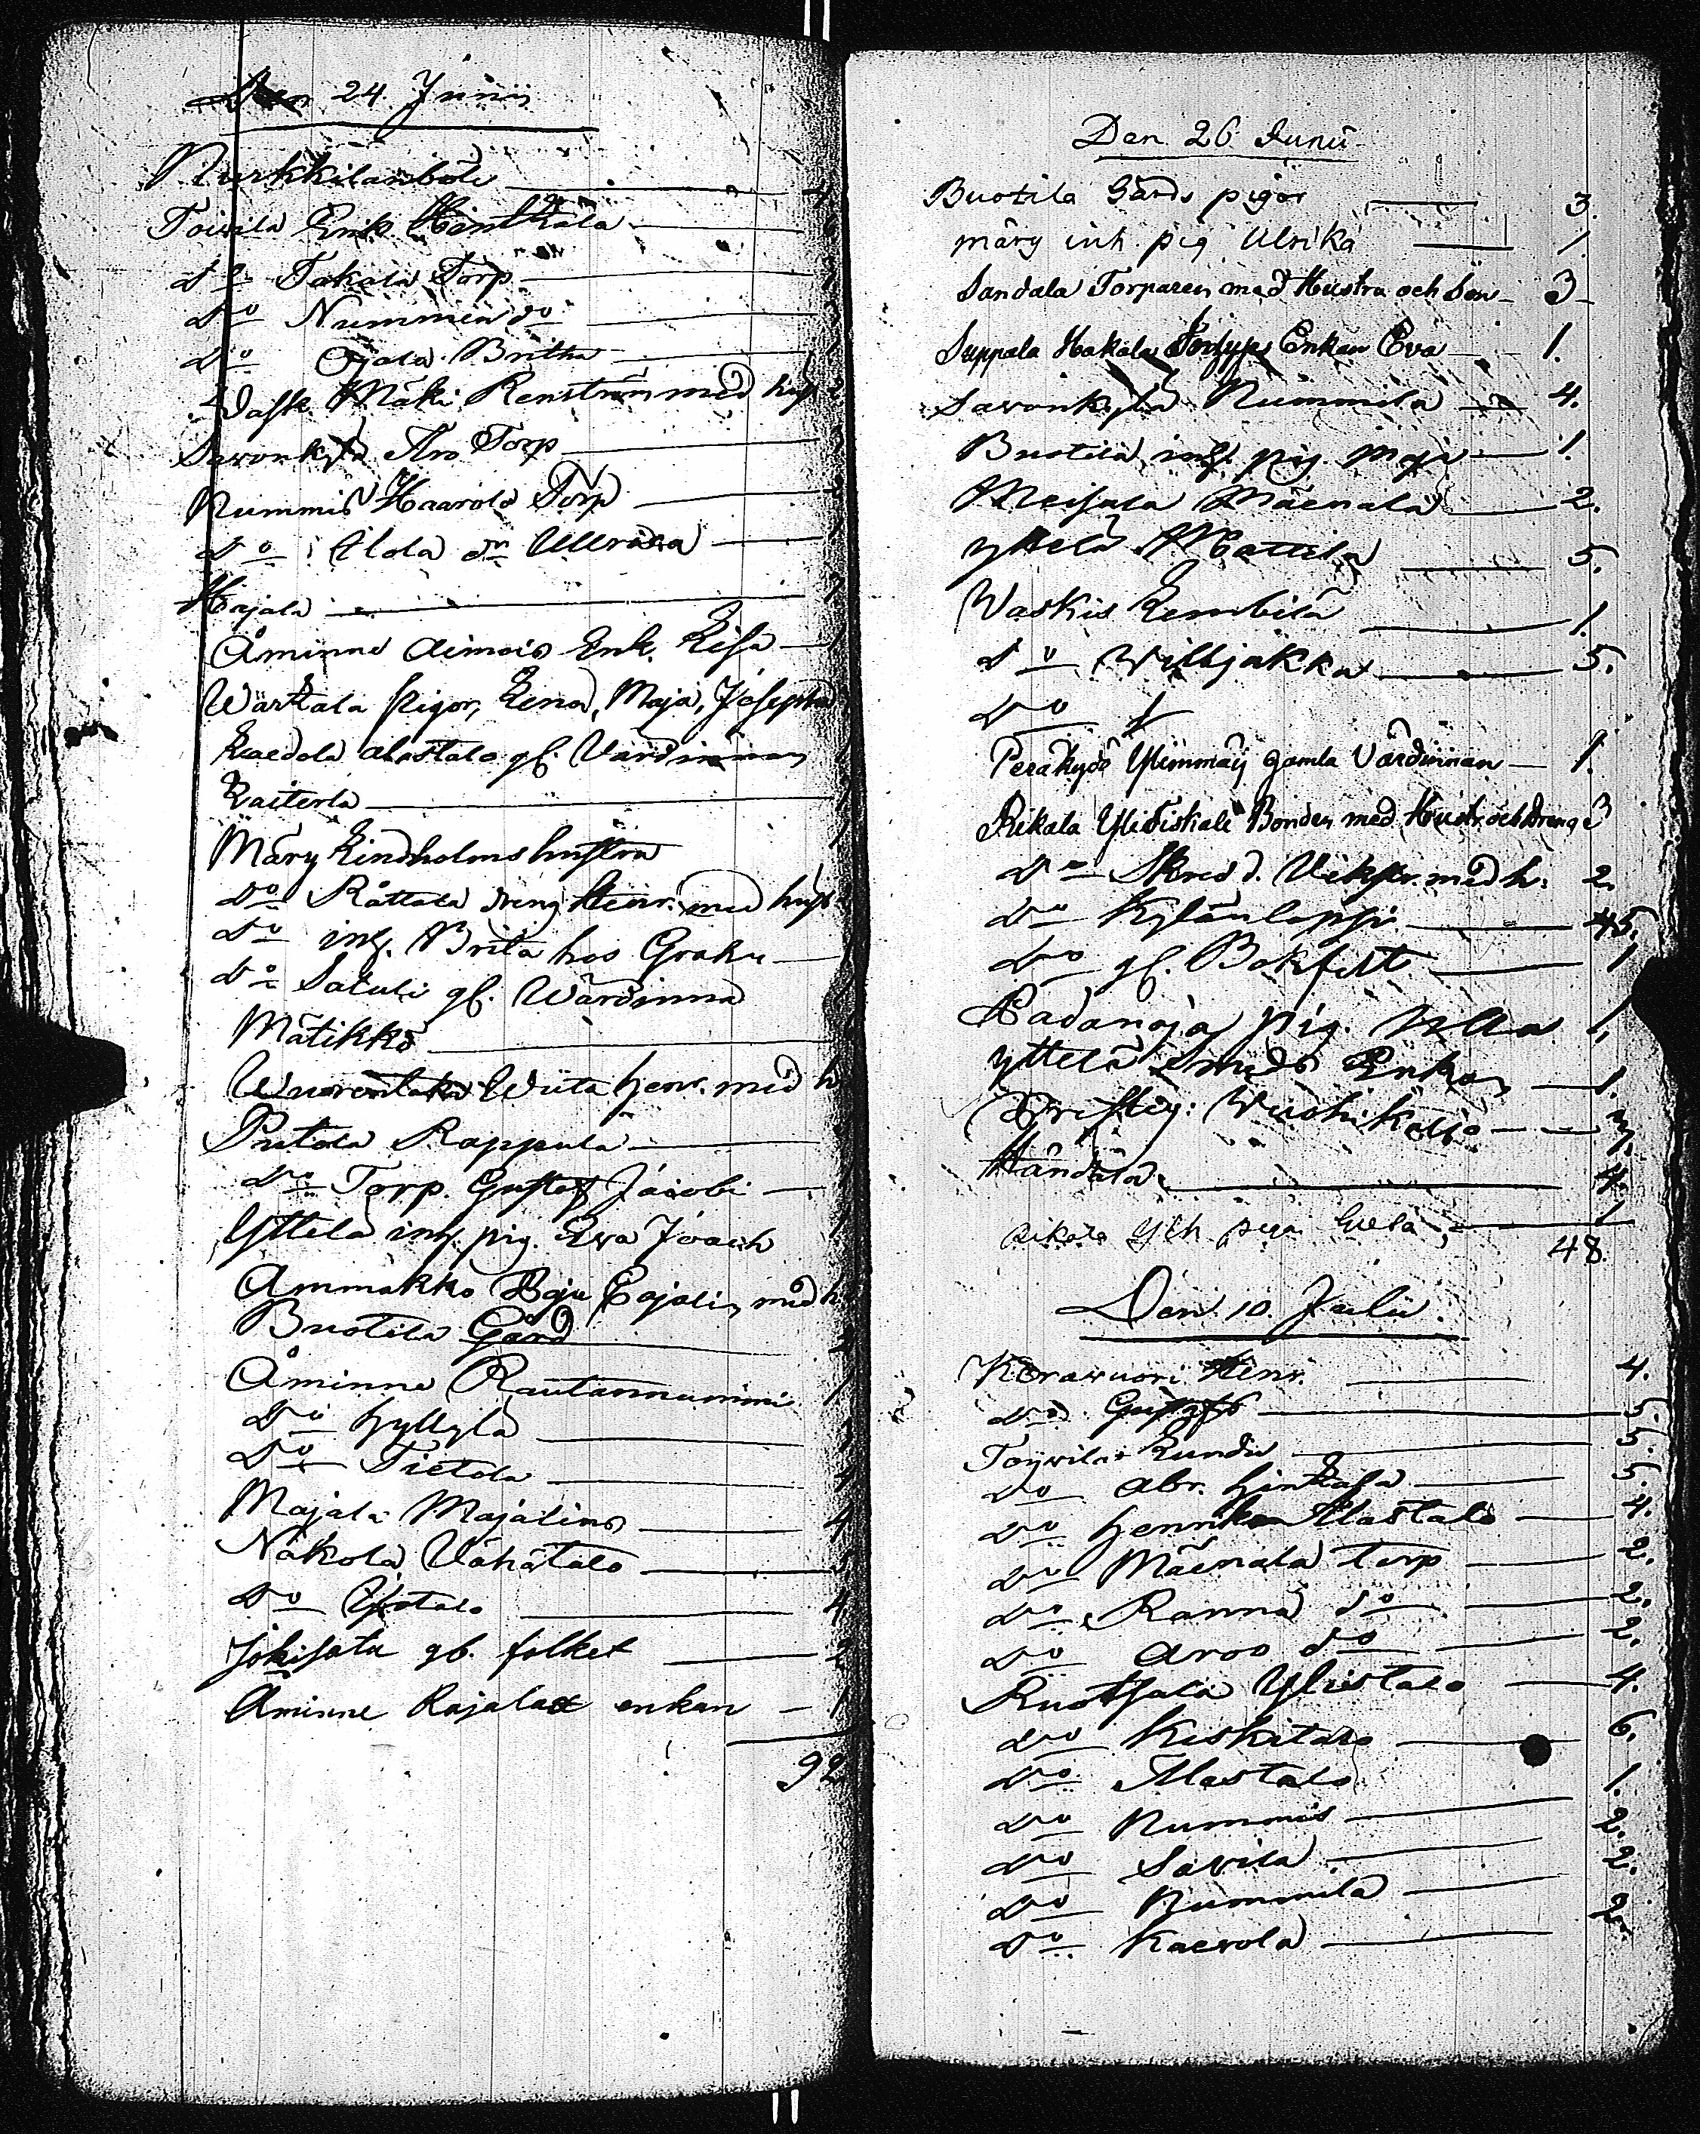 Den 24. Junii
Nurkkilanböle 4
Toivila Erik Händälä 6
Do Takala Torp
Do Nummen do
Do Ojala Britha
Vask. Mäki Renström med hust 2
Savonkylä Aro Torp
Nummis Haarola Torp
Do Ulola Ullrica
Hajala
Åminne Aimois Enk. Lisa
Wartala pigor, Lena, Maja, Josepha
Kaedola alastalo gl. Värdinnan
Kaiterla
Märy Lindholms hustra
Do Råttala dreng Henr. med hust
Do inh. Brita hos Grahn
Do Saluli gl. Wärdinna
Mätikkö
Wuorentaka Wiita Henr. med h
Putola Rappula
Do Torp. Gustaf Jacobi
Yttelä inh. pig. Eva Joach
Ammakko Eva Cajali med h
Buotila Gård
Åminne Rautannummi 1
Do Hyllylä
Do Tietola
Majala Majalins 4
Näkola Vähätalo
Do Ylistalo 4
Jokisatu gb. folket 2
Åminne Rajalax enkan - 1
92
Den 26 Junii
Buotila Gårds pigor 3.
märy inh. pig Ulrika 1.
Sandala Torparen med Hustra och Son 3
Suppala Hakala Enkan Eva 1.
Savonkylä Nummila 4.
Buotila inh. pig. Maja 1.
Meisala Mäenala 2.
Yttelä Mattila 5.
Waskis Lembilä 1.
Do Wilhjakka 5.
Do
Peräkylä Ylimmäij gamla Värdinnan 1.
Rikala Ylidiskali Bonden med Hustr. och Dreng 3
Do Skredd. Vikstr. med h. 2.
Do Kylänlappi 45.
Do gl. Bokfelt 1
Padanoja pig. Ulla 1.
Yttelä Smeds Enkan 1.
Wuohikallio 3.
Händälä 4.
Rikala Yli piga Lieta 1
48.
Den 10. Julii.
Korvavuori Henr. 4.
Do Gustafs 5.
Toijvila Lundin 5.
Do Abr. Hintkasa 5.
Do Henrika Alastalo 4.
Do Mäenala torp 2.
Do Ranna do 2.
Do Aroo do 2.
Ruotsala Ylistalo 4.
Do Keskitalo 6.
Do Alastalo 1.
Do Nummis 2.
Do Savila 2.
Do Nummila 2.
Do Kaerola